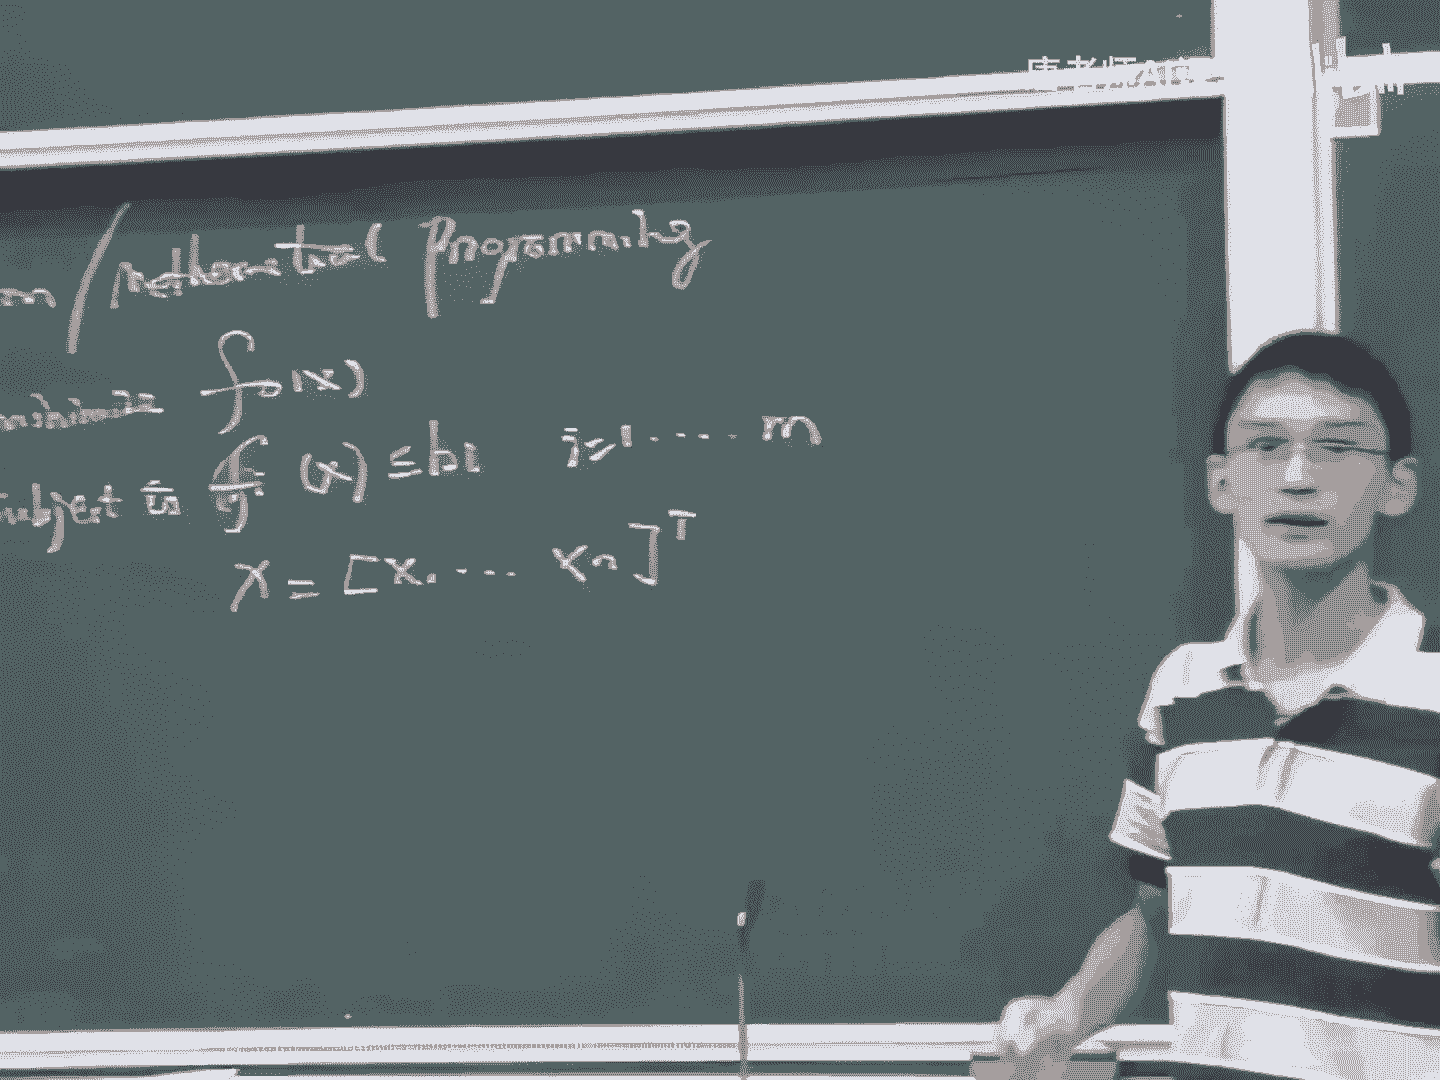 唐老师AI
/Mathematical Programming
minimize f₀(x)
subject to fᵢ(x) ≤ bi i=1....m
x = [x₁ ... xn]ᵀ